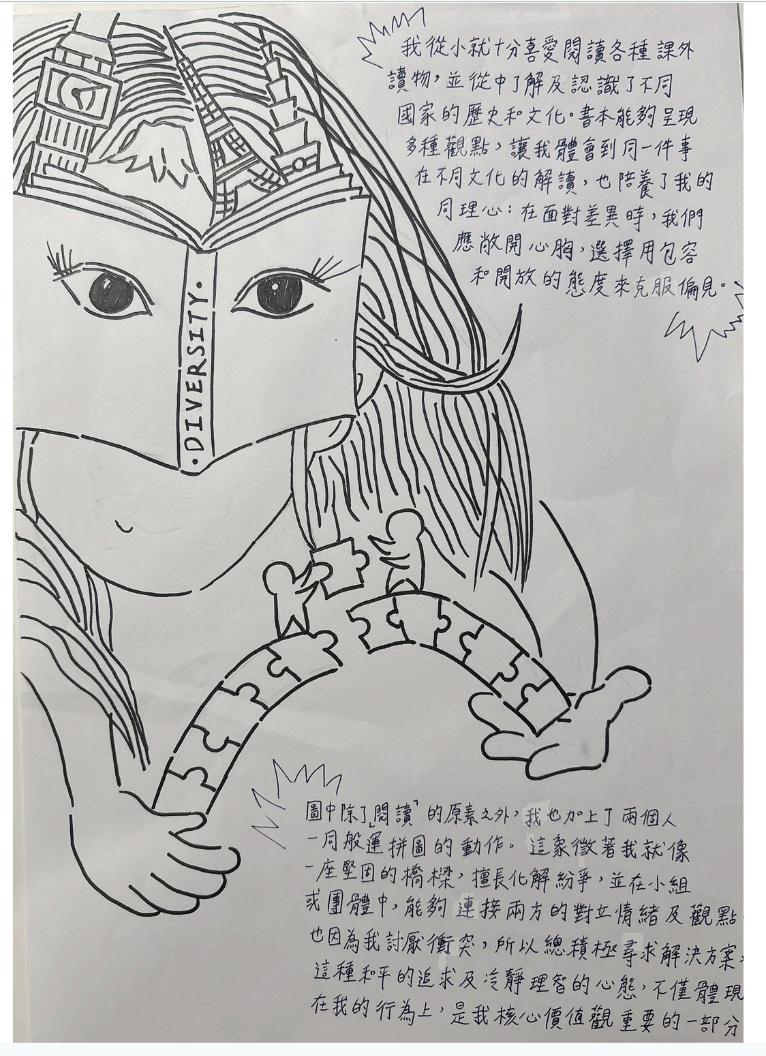 我從小就十分喜愛閱讀各種課外
讀物，並從中了解及認識了不同
國家的歷史和文化。書本能夠呈現
多種觀點，讓我體會到同一件事
在不同文化的解讀，也陪養了我的
同理心：在面對差異時，我們
應敞開心胸，選擇用包容
和開放的態度來克服偏見。
·DIVERSITY·
圖中除了「閱讀」的原素之外，我也加上了兩個人
一同般運拼圖的動作。這象徵著我就像
一座堅固的橋樑，擅長化解紛爭，並在小組
或團體中，能夠連接兩方的對立情緒及觀點
也因為我討厭衝突，所以總積極尋求解決方案，
這種和平的追求及冷靜理智的心態，不僅體現
在我的行為上，是我核心價值觀重要的一部分